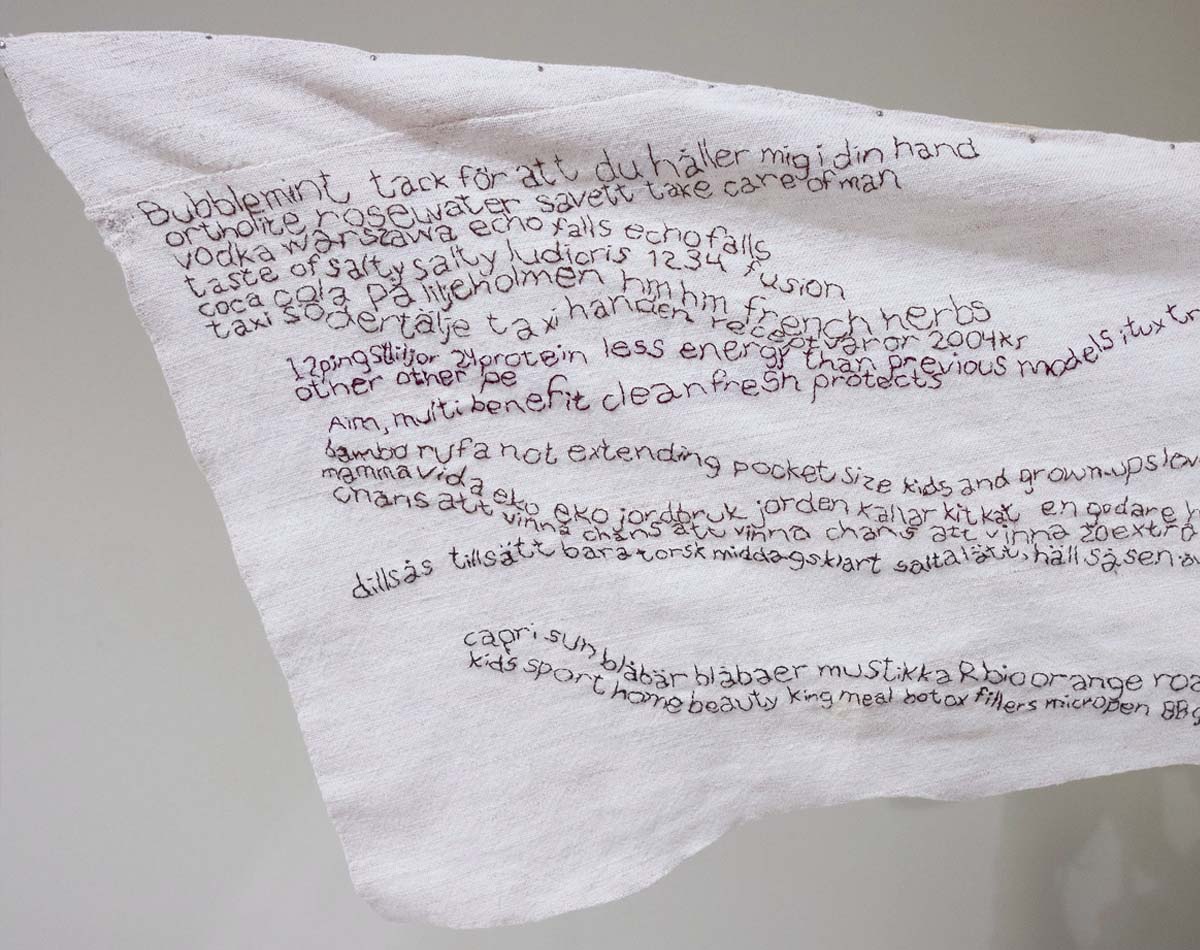 Bubblemint tack för att du håller mig i din hand
ortholite rosewater savett take care of man
vodka warszawa echo falls echo falls
taste of salty salty ludicris 1234 fusion
coca cola på liljeholmen hm hm french herbs
taxi södertälje taxi handen receptvaror 2004kr
12pingstliljor 24protein less energy than previous models
other other pe
Aim, multi benefit clean fresh protects
bambo rufa not extending pocket size kids and grown-ups
mamma vida eko eko jordbruk jorden källar kitkat en godare
chans att vinna chans att vinna chans att vinna 20 extra
dillsås tillsätt bara torsk middagsklart salta lätt, häll såsen
capri sun blåbär blåbaer mustikka R bio orange
kids sport home beauty king meal botox fillers micropen